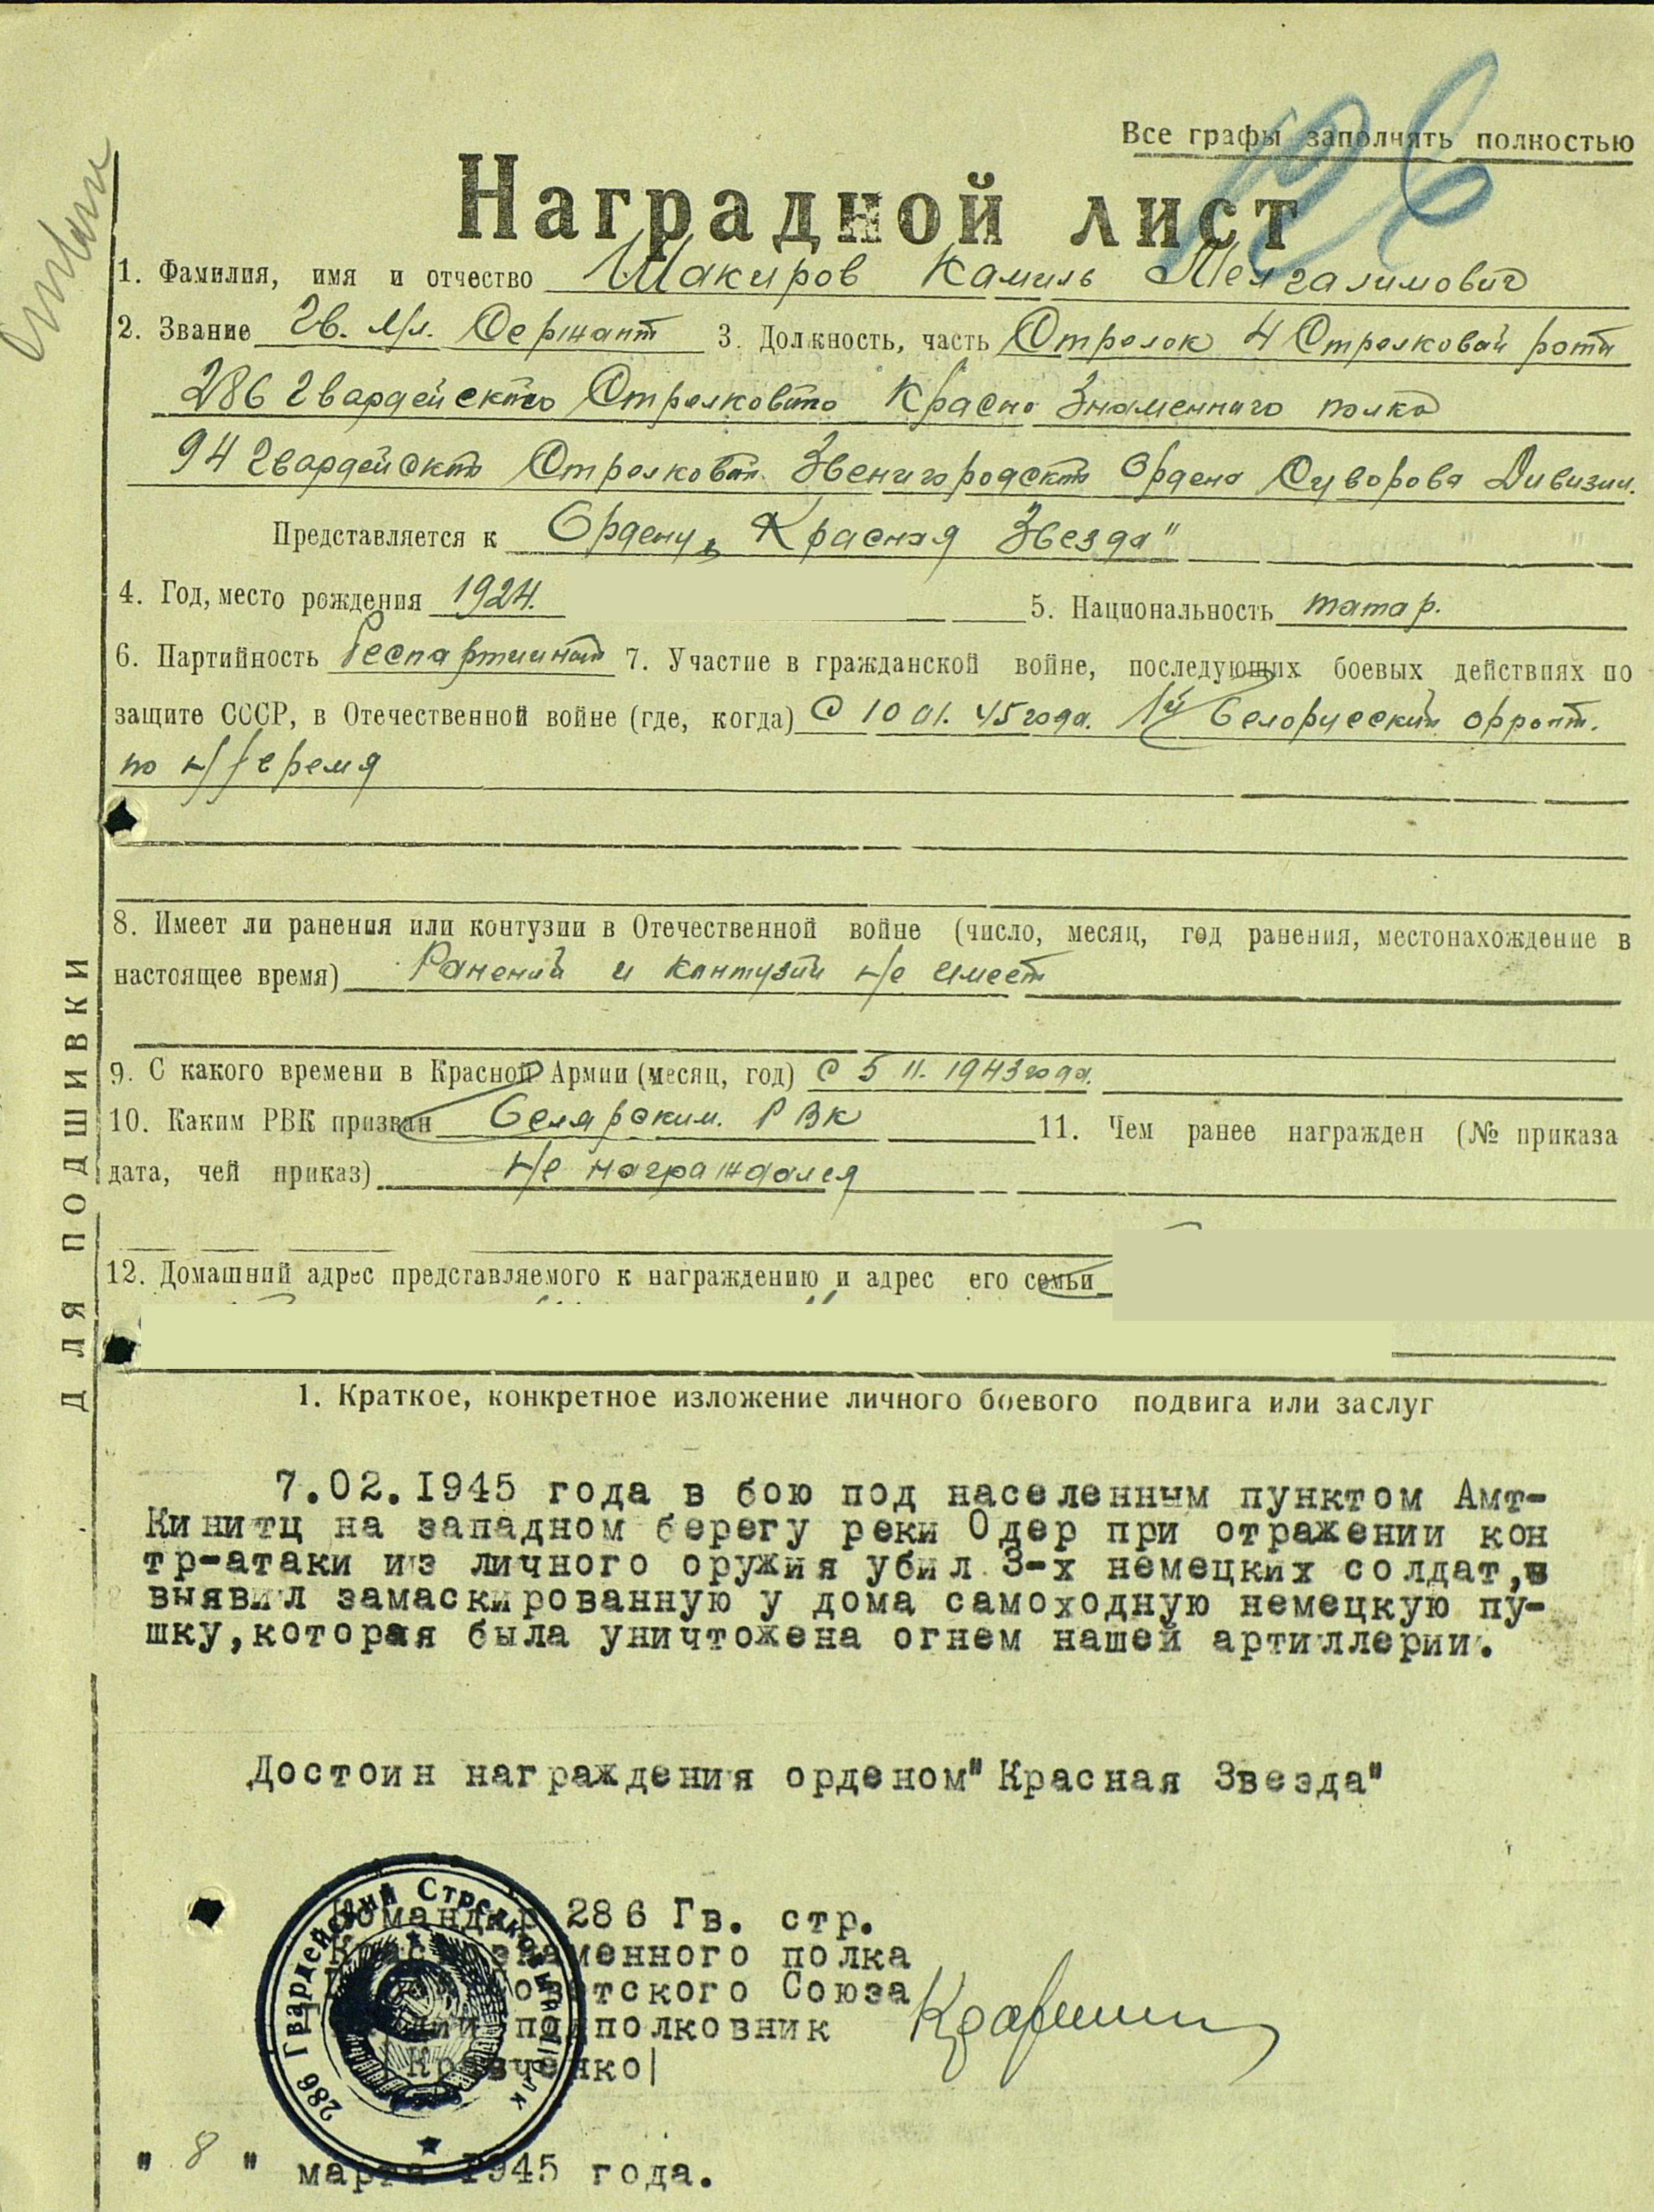 Все графы заполнять полностью
126
Наградной лист
1. Фамилия, имя и отчество Шакиров Камиль Менгалимович
2. Звание Гв. Мл. Сержант 3. Должность, часть Стрелок 4 Стрелковой роты
286 Гвардейского Стрелкового Красно Знаменного полка
94 Гвардейской Стрелковой Звенигородской Ордена Суворова Дивизии.
Представляется к Ордену „Красная Звезда"
4. Год, место рождения 1924. 5. Национальность татар.
6. Партийность беспартийный 7. Участие в гражданской войне, последующих боевых действиях по
защите СССР, в Отечественной войне (где, когда) С 10 01. 45 года. 1й Белорусский фронт.
по н/время
8. Имеет ли ранения или контузии в Отечественной войне (число, месяц, год ранения, местонахождение в
настоящее время) Ранений и контузий не имеет
9. С какого времени в Красной Армии (месяц, год) С 5 11. 1943 года.
10. Каким РВК призван РВК 11. Чем ранее награжден (№ приказа
дата, чей приказ) не награждался
12. Домашний адрес представляемого к награждению и адрес его семьи
ДЛЯ ПОДШИВКИ
1. Краткое, конкретное изложение личного боевого подвига или заслуг
7.02.1945 года в бою под населенным пунктом Амт-
Кинитц на западном берегу реки Одер при отражении кон
тр-атаки из личного оружия убил 3-х немецких солдат,в
выявил замаскированную у дома самоходную немецкую пу-
шку,которая была уничтожена огнем нашей артиллерии.
Достоин награждения орденом"Красная Звезда"
Командир 286 Гв. стр.
Краснознаменного полка
Советского Союза
подполковник
|Кравченко|
286 Гвардейский Стрелковый полк
" 8 " марта 1945 года.